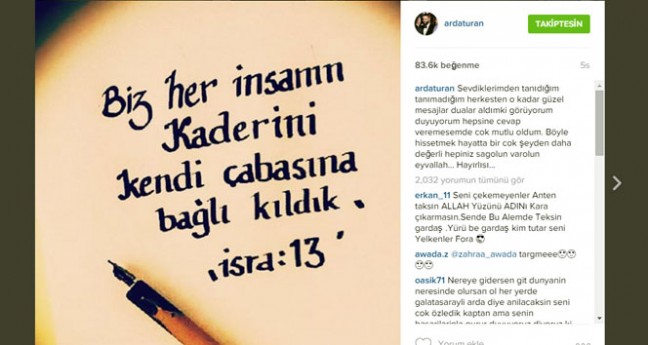 Biz her insanın
Kaderini
kendi çabasına
bağlı kıldık.
isra:13
ardaturan
TAKİPTESİN
83.6k beğenme
5s
ardaturan Sevdiklerimden tanıdığım
tanımadığım herkesten o kadar güzel
mesajlar dualar aldımki görüyorum
duyuyorum hepsine cevap
veremesemde cok mutlu oldum. Böyle
hissetmek hayatta bir cok şeyden daha
değerli hepiniz sagolun varolun
eyvallah... Hayırlısı...
2,032 yorumun tümünü gör
erkan_11 Seni çekemeyenler Anten
taksın ALLAH Yüzünü ADINı Kara
çıkarmasın.Sende Bu Alemde Teksin
gardaş .Yürü be gardaş kim tutar seni
Yelkenler Fora 😎
awada.z @zahraa_awada targmeee🙄🙄
🙄🙄
oasik71 Nereye gidersen git dunyanin
neresinde olursan ol her yerde
galatasarayli arda diye anilacaksin seni
cok özledik kaptan ama senin
Yorum ekle